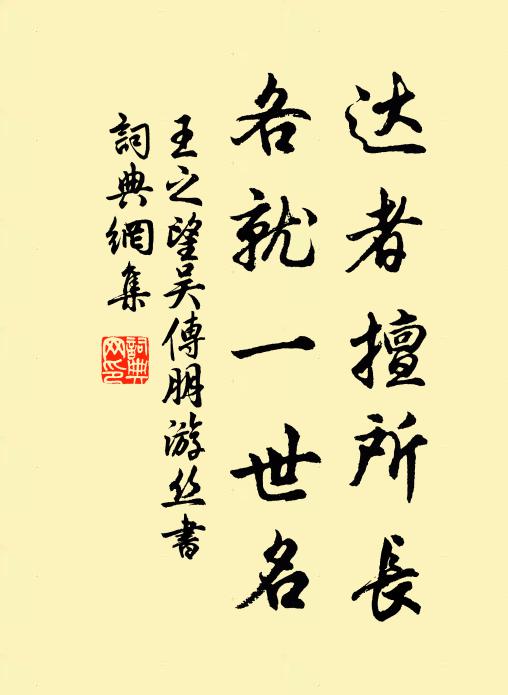 达者擅所長
各就一世名
王之望吴傅朋游丝書
詞典網集
詞典
网印